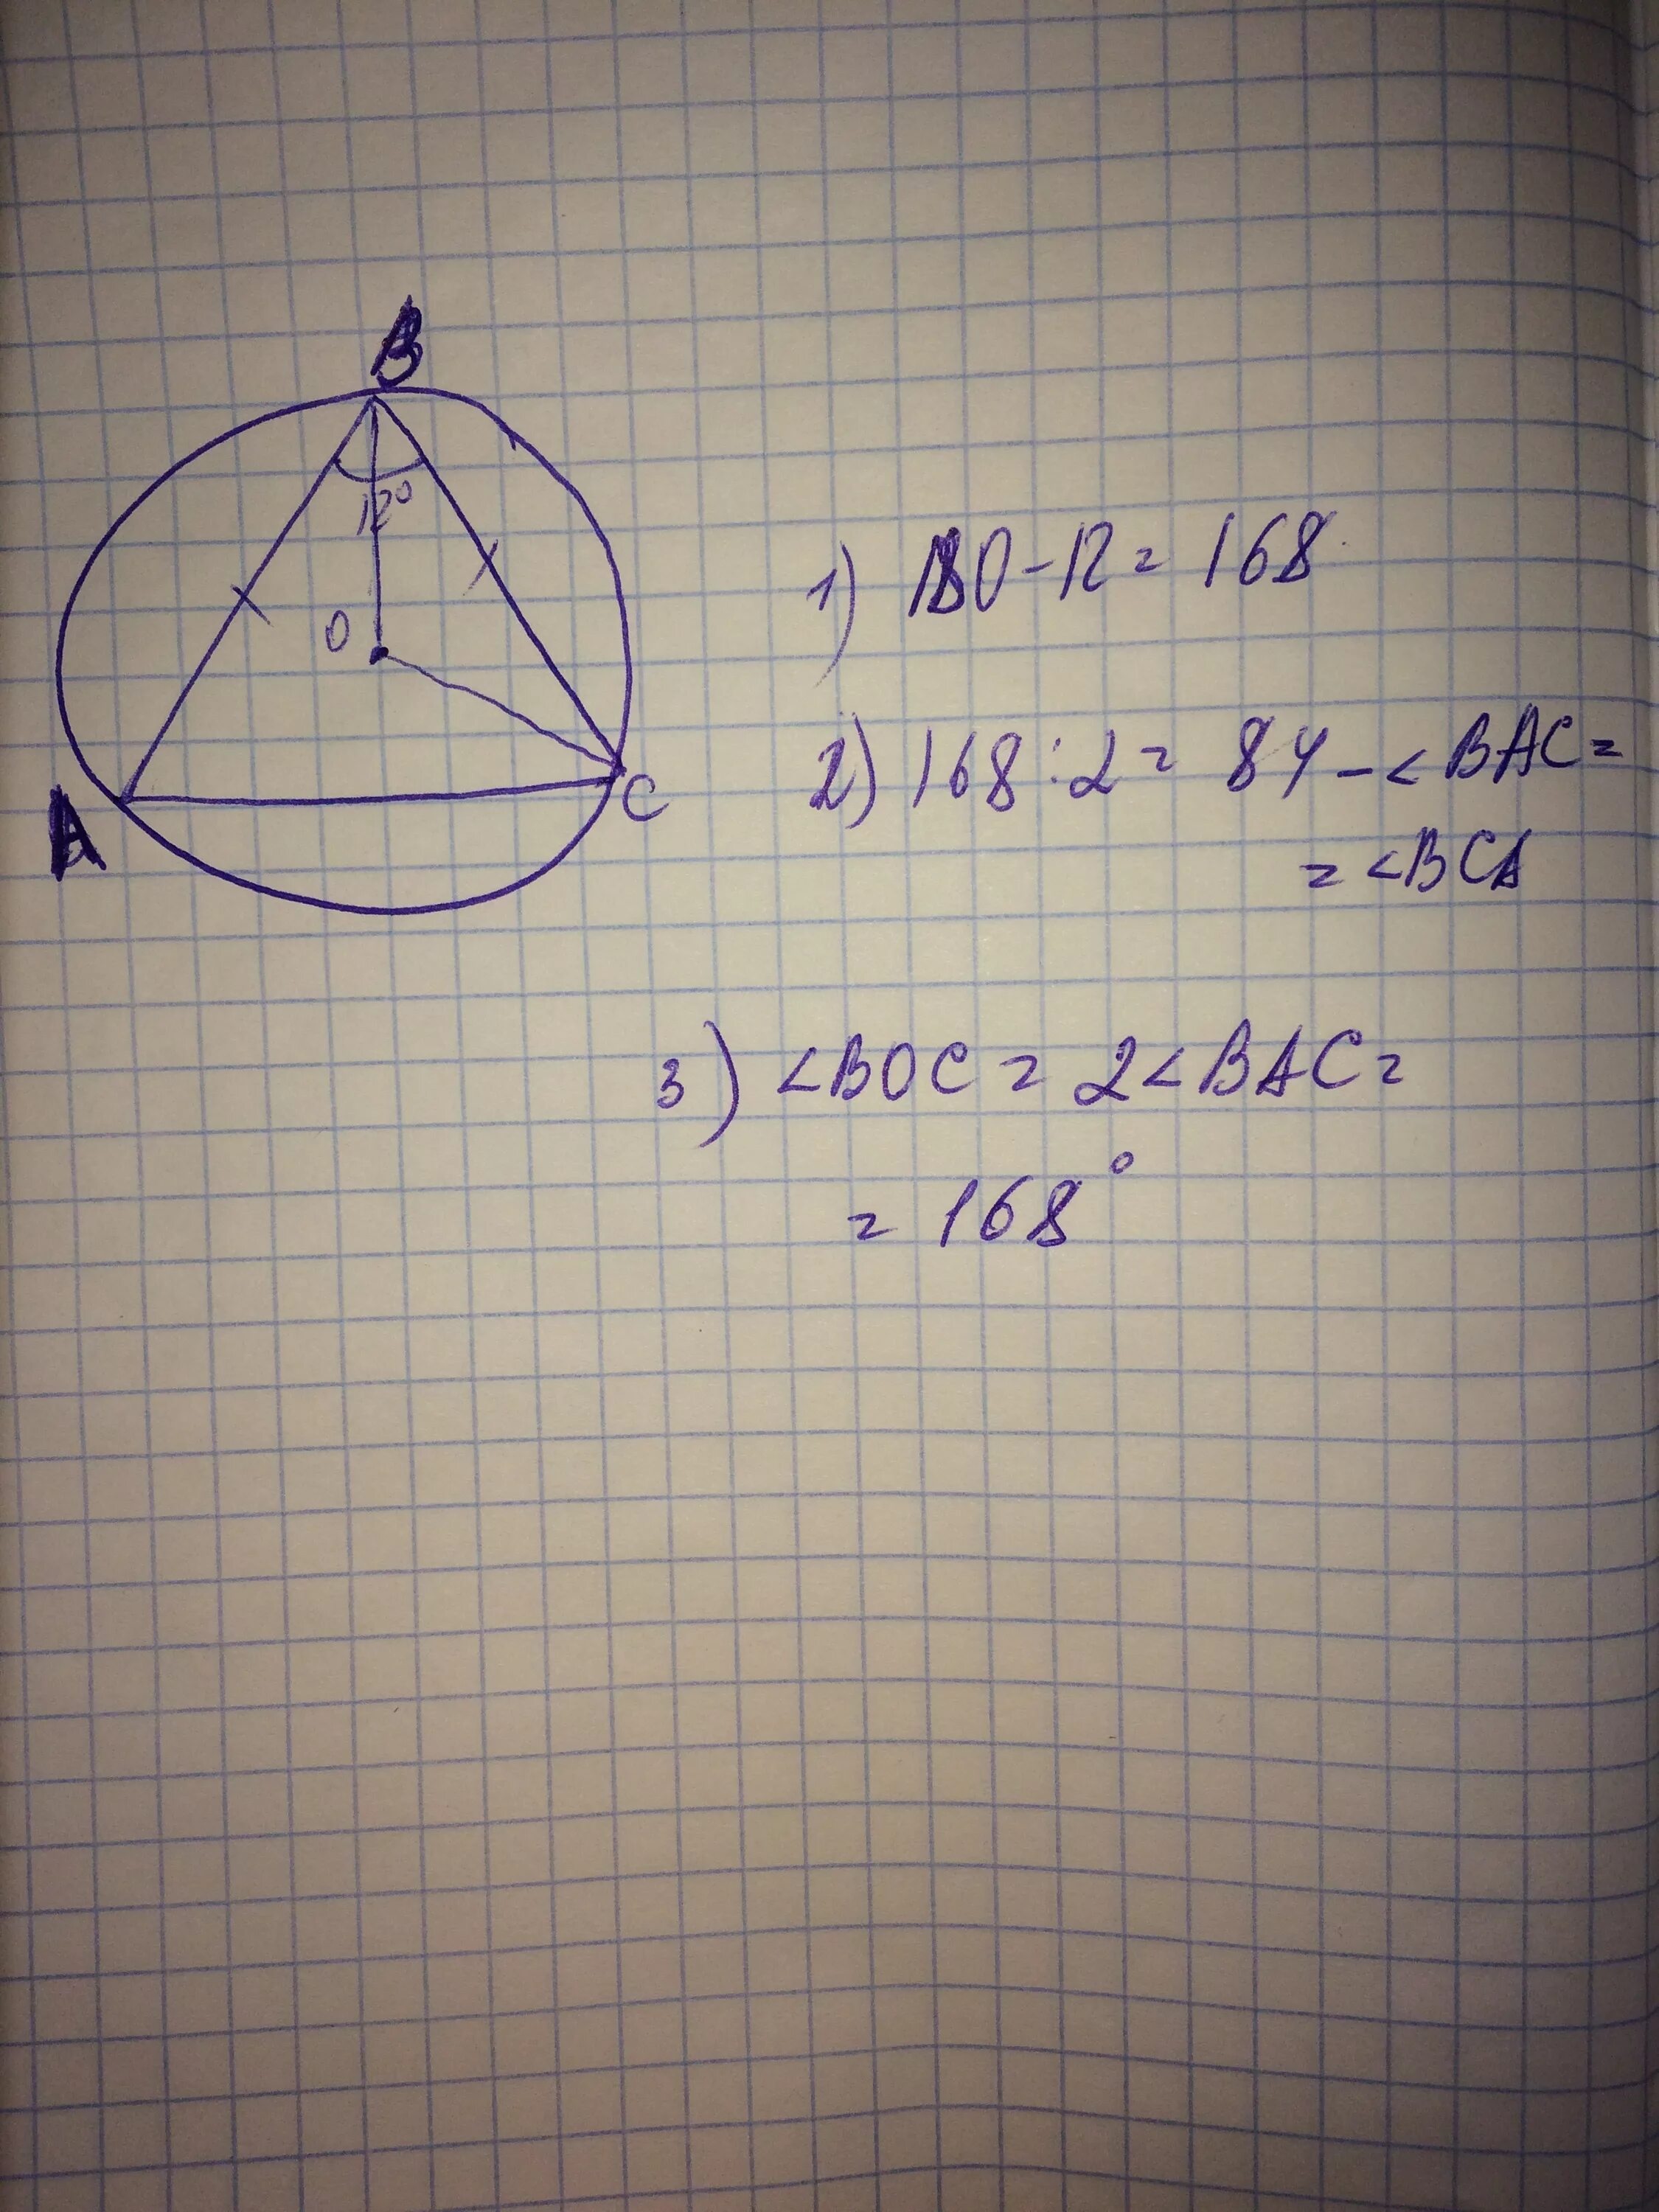 B
12°
O
A
C
1) 180-12=168
2) 168:2=84-<BAC=
=<BCA
3) <BOC=2<BAC=
=168°